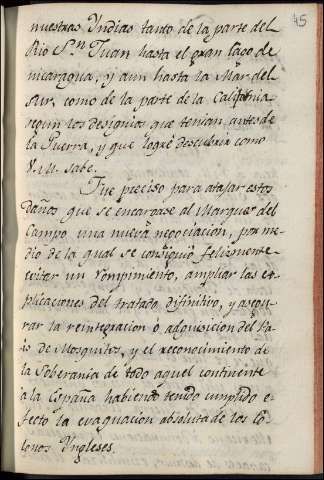 45
nuestras Yndias tanto de la parte del
Rio Sn Juan hasta el gran lago de
nicaragua, y aun hasta la Mar del
Sur, como de la parte de la California
segun los designios que tenian antes de
la Guerra, y que logré descubrir como
V.M. sabe.
Fue preciso para atajar estos
daños que se encargase al Marques del
Campo una nueva negociacion, por me-
dio de la qual se consiguió felizmente
evitar un rompimiento, ampliar las ex-
plicaciones del tratado difinitivo, y asegu-
rar la reintegracion ó adquisicion del Pa-
is de Mosquitos, y el reconocimiento de
la Soberania de todo aquel continente
a la España habiendo tenido cumplido e-
fecto la evaquacion absoluta de los Co-
lonos Yngleses.